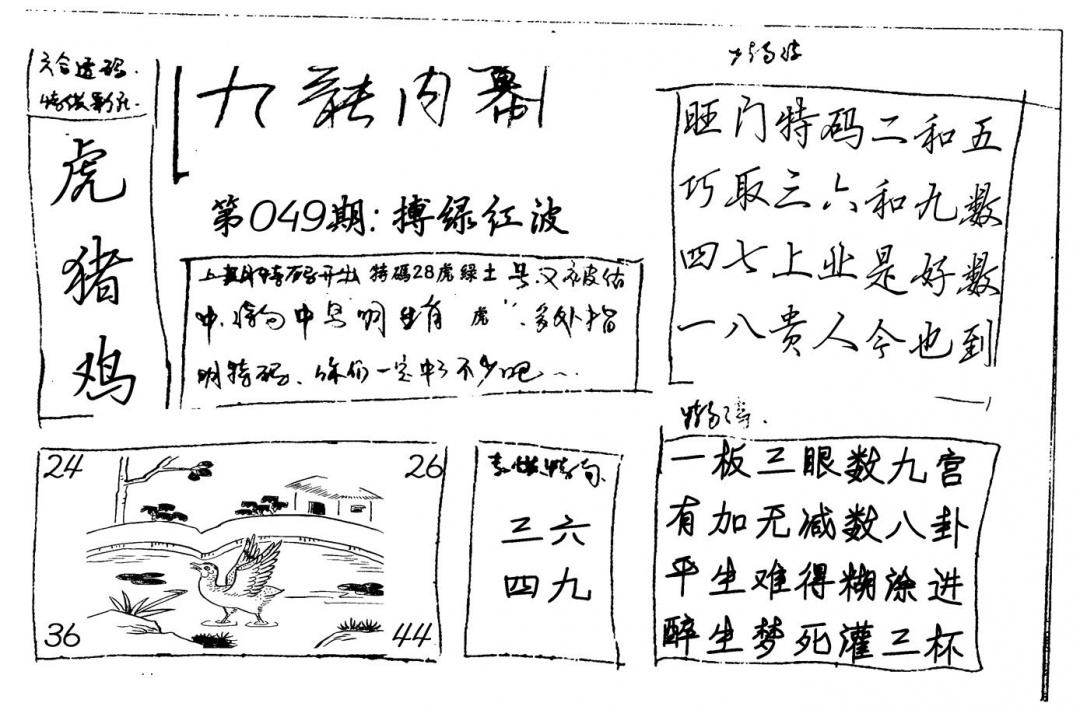 六合透码
虎
猪
鸡
九龍内幕
第049期:搏绿红波
上期特码开出 特碼28虎绿土
中 中 明 生肖 虎 多处指
明特码、你们一定中了不少吧...
旺门特码二和五
巧取三六和九数
四七上业是好数
一八贵人今也到
24
26
36
44
三六
四九
一板三眼数九宫
有加无减数八卦
平生难得糊涂进
醉生梦死灌三杯